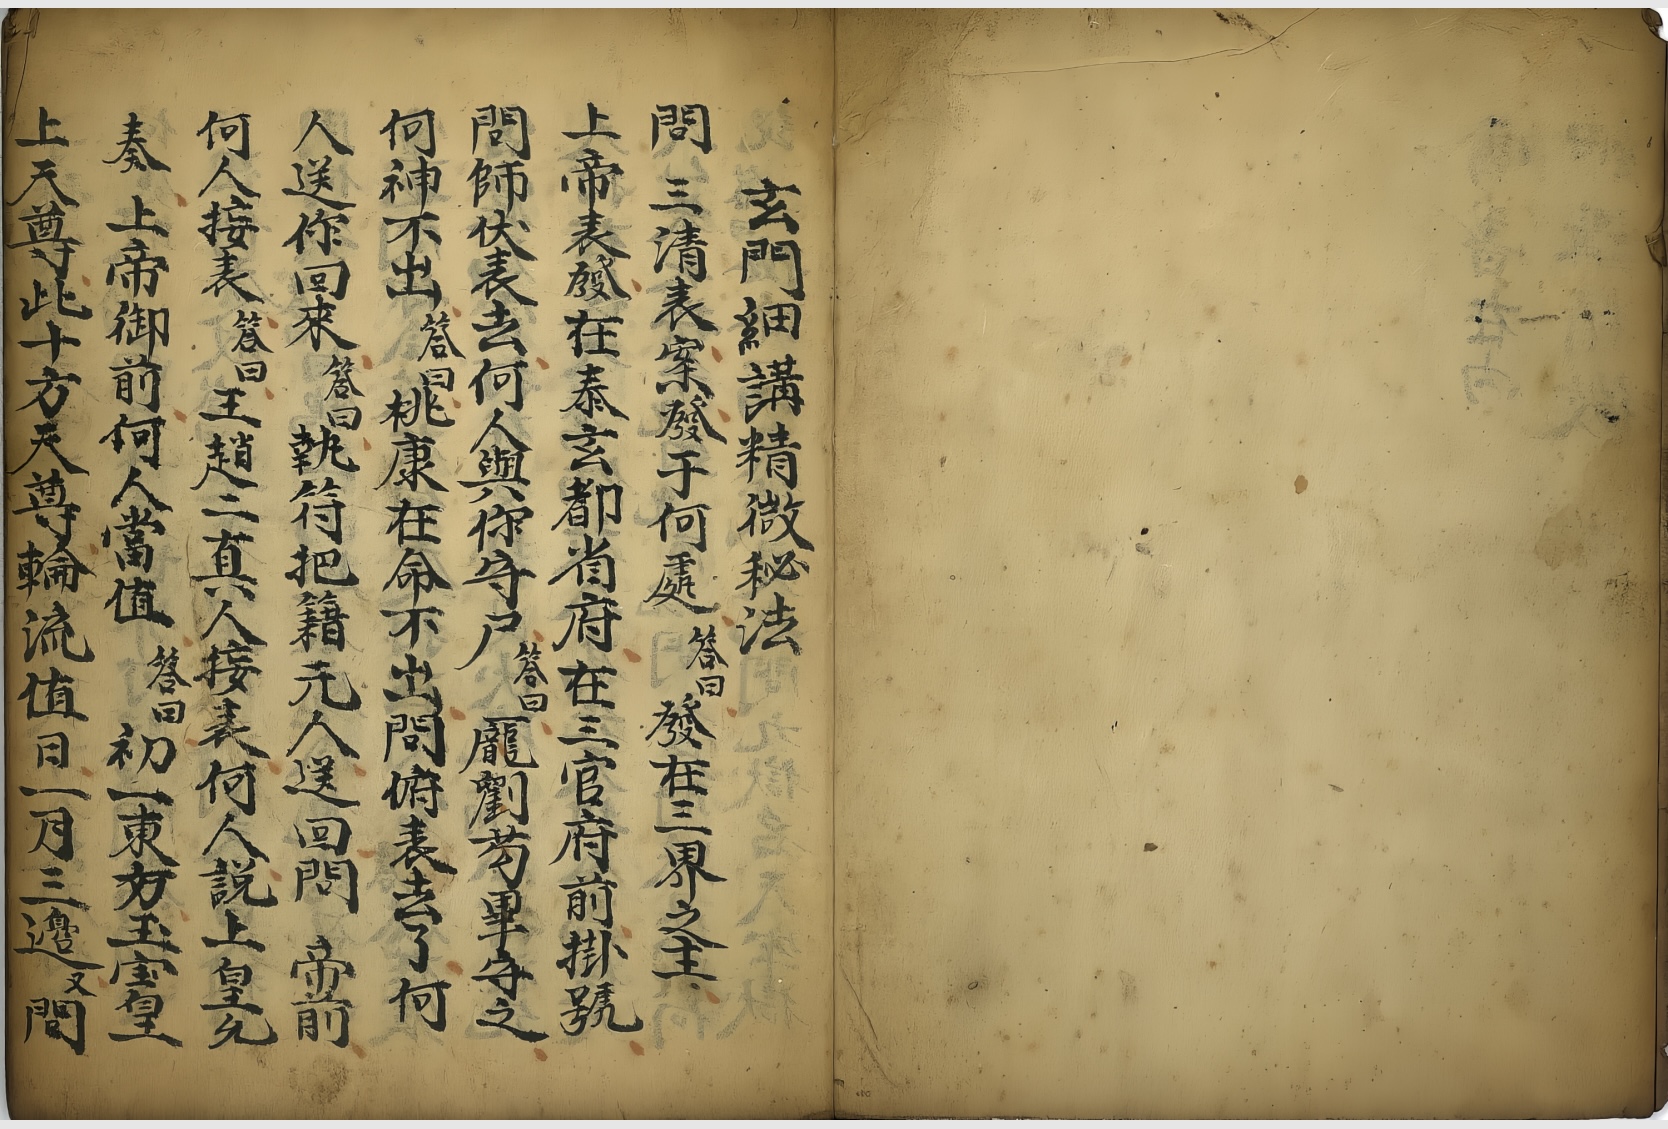 玄門細講精微秘法
問 三清表案發于何處 答曰 發在三界之主
上帝表發在泰玄都省府在三官府前掛號
問師伏表去何人與你守户 答曰 龎劉茍畢守之
何神不出 答曰 桃康在命不出問俯表去了何
人送你回來 答曰 執符把籍元人送回問 帝前
何人接表 答曰 王趙二真人接表何人説上皇允
奏 上帝御前何人當值 答曰 初一東方玉宝皇
上天尊此十方天尊輪流值日一月三邊又問